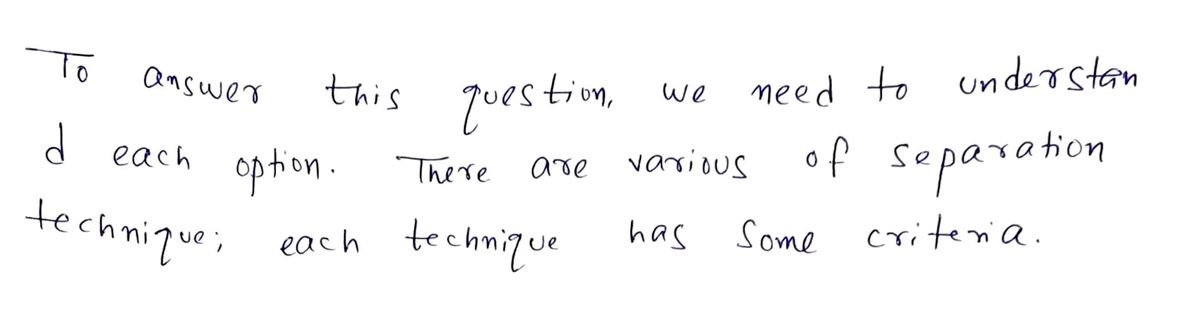 To answer this question, we need to understan
d each option. There are various of separation
technique; each technique has some criteria.